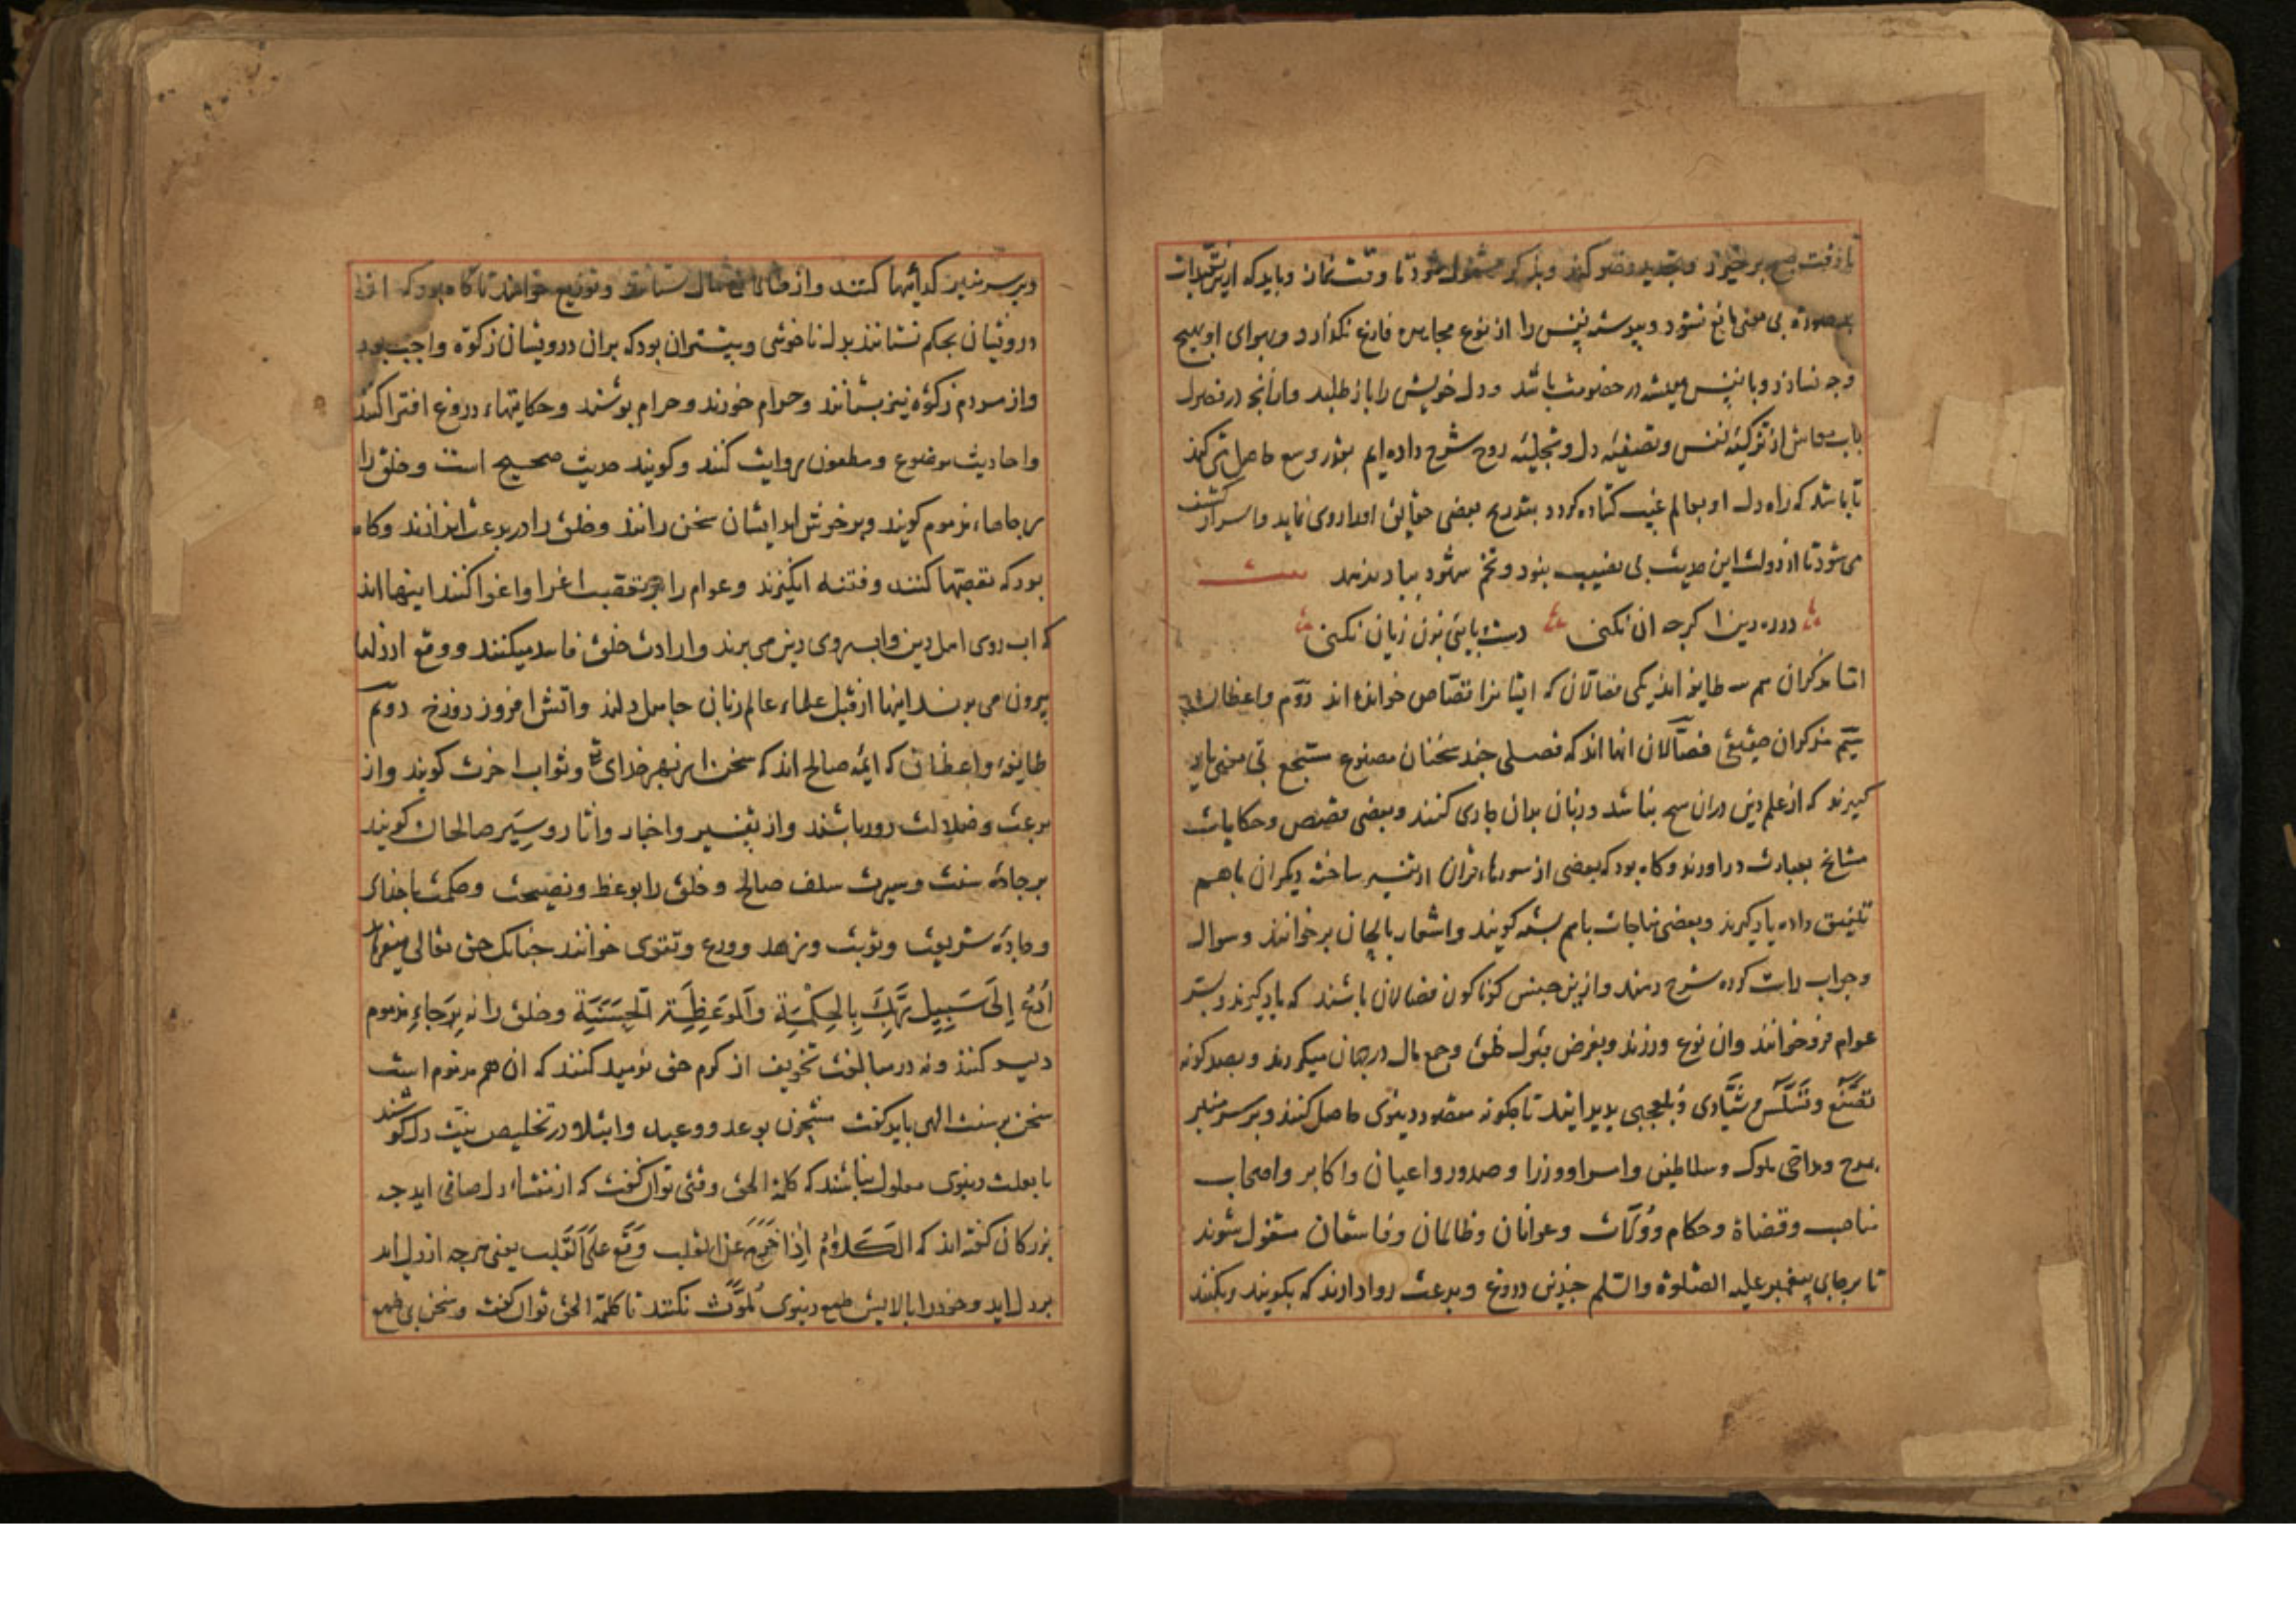 تا وقت صبح برخیزد و تجدید وضو کند و بذکر مشغول شود تا وقت نماز و باید که ازین تقیدات
بصورة بی معنی مانع نشود و پیوسته نفس را از نوع مجاهده فارغ نکذارد و بهوای او بهیچ
وجه نسازد و با نفس همیشه در خصومت باشد و دل خویش را باز طلبد و از آنجه در فصول
باب معاش از تزکیهٔ نفس و تصفیهٔ دل و تجلیهٔ روح شرح داده ایم بقدر وسع حاصل می کند
تا باشد که راه دل او بعالم غیب کشاده کردد بتدریج بعضی حقایق او را روی نماید و اسرار کشف
می شود تا از دولت این حدیث بی نصیب نبود و تخم بباد ندهد بیت
در ره دین ا کرجه ان نکنی دست بایی بزن زیان نکنی
اما مذکران سه طایفه اند یکی فصالان که ایشانرا قصاص خوانده اند دوم واعظان
سیم مذکران حقیقی فصالان انها اند که فصلی چند سخنان مصنوع مسجع بی معنی یاد
کیرند که از علم دین دران هیج نباشد و زبان بدان جاری کنند و بعضی قصص و حکایات
مشایخ بعبارت دراورند و کاه بود که بعضی از سورهاء قران از تفسیر ساخته دیکران باهم
تلفیق داده یاد کیرند و بعضی مناجات باهم بسته کویند و اشعار بالحان برخوانند و سوال
و جواب راست کرده شرح دهند و ازین جنس کوناکون فصالان باشند که یاد کیرند و بر سر
عوام فرو خوانند و ان نوع ورزند و بغرض قبول خلق و جمع مال در جهان میکردند و بصد کونه
تصنع و تسلس و شیادی و بلعجبی بدید ایند تا جکونه مقصود دنیوی حاصل کنند و بر سر منبر
بمدح و مداحی ملوک و سلاطین و امرا و وزرا و صدور و اعیان و اکابر و اصحاب
مناصب و قضاة و حکام و ولات و عوانان و ظالمان و فاسقان مشغول شوند
تا بر جای پیغمبر علیه الصلوة والسلم جندین دروغ و بدعت روا دارند که بکویند و بکنند
و بر سر منبر کدائیها کنند و از ظالمان مال ستانند و توزیع خواهند تا کاه بود که از
درویشان بحکم بستانند بدل ناخوشی و بیشتر ان بود که بران درویشان زکوة واجب بود
و از مردم زکوة نیز بستانند و حرام خورند و حرام بوشند و حکایتهاء دروغ افترا کنند
و احادیث موضوع و مطعون روایت کنند و کویند حدیث صحیح است و خلق را
رجاهاء مذموم کویند و بر خوش امد ایشان سخن رانند و خلق را در بدعت اندازند و کاه
بود که تعصبها کنند و فتنه انکیزند و عوام را بر تعصب اغرا و اغوا کنند اینها اند
که اب روی اهل دین و اب روی دین می برند و ارادت خلق فاسد میکنند و وقع از دلها
بیرون می برند اینها از قبل علماء عالم زبان جاهل دلند و اتش افروز دوزخ دوم
طایفهٔ واعظان که ایمه صالح اند که سخن از بهر خدای تع و ثواب اخرت کویند و از
بدعت و ضلالت دور باشند و از تفسیر و اخبار و اثار و سِیَر صالحان کویند
بر جادهٔ سنت و سیرت سلف صالح و خلق را بوعظ و نصیحت و حکمت با خدای
و جادهٔ شریعت و توبت و زهد و ورع و تقوی خوانند جنانک حق تعالی میفرماید
اُدْعُ اِلَی سَبِیلِ رَبِّکَ بِالحِکْمَةِ وَالمَوعِظَةِ الْحَسَنَةِ و خلق را نه بِرَجاءِ مذموم
دلیر کنند و نه در مبالغت تخویف از کرم حق نومید کنند که ان هم مذموم است
سخن بر سنت الهی باید کفت مشحون بوعد و وعید و ابتلا و در تخلیص نیت دل کوشند
تا بعلت دنیوی معلول نباشند که کلمة الحق وقتی توان کفت که از منشاء دل صافی اید جه
بزرکان کفته اند که الکَلامُ اِذا خَرَجَ عَنِ القلب وَقَعَ عَلَی القَلب یعنی هرجه از دل اید
بر دل اید و خود را بالایش طمع دنیوی مُلَوَّث نکنند تا کلمة الحق توان کفت و سخن بی طمع